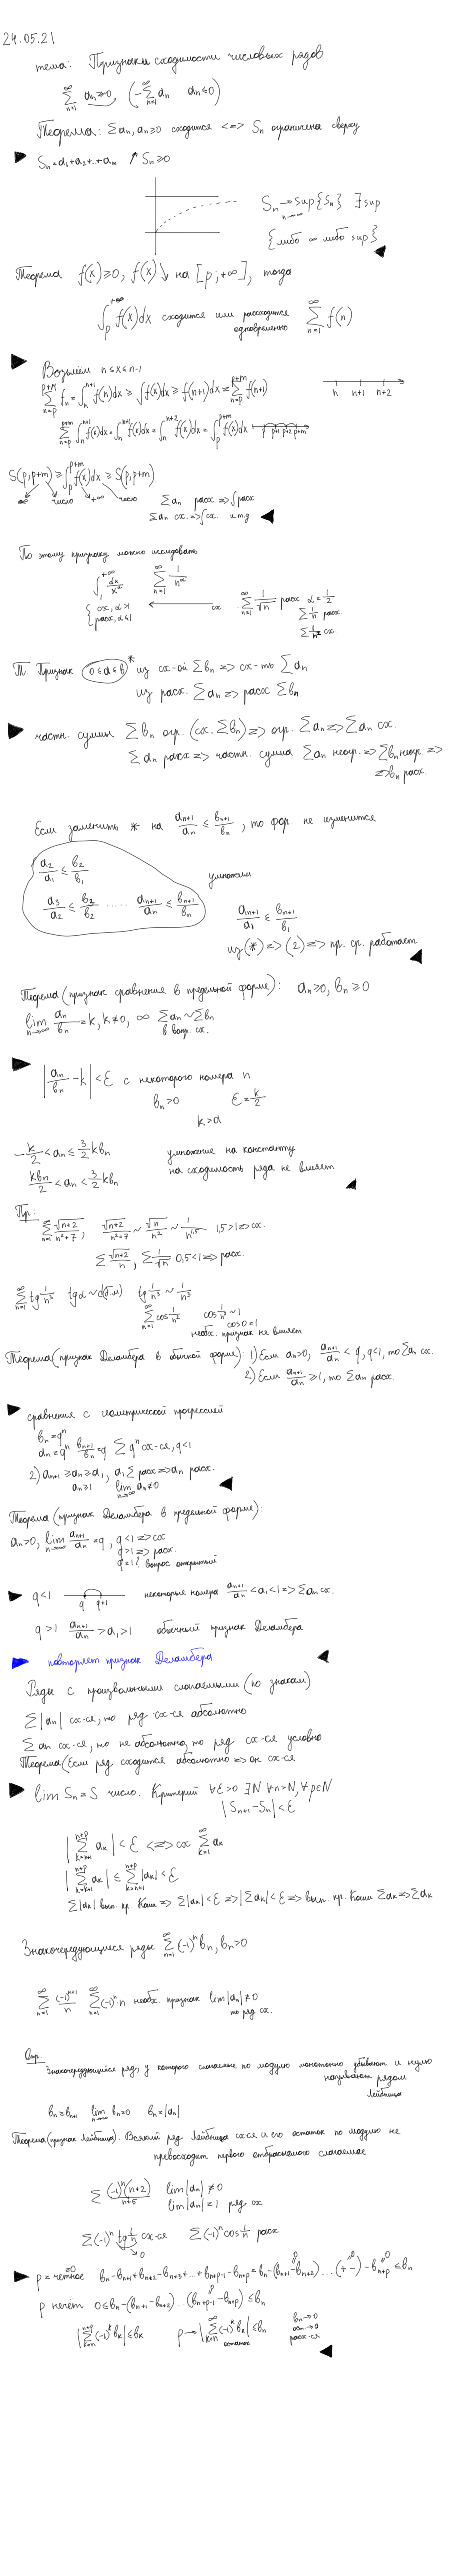 24.05.21
тема: Признаки сходимости числовых рядов
∑_{n=1}^{∞} a_n ≥0 (-∑_{n=1}^{∞} a_n a_n≤0)
Теорема: ∑a_n, a_n≥0 сходится <=> S_n ограничена сверху
S_n=a_1+a_2+...+a_n ↗ S_n≥0
S_n → sup{S_n} ∃ sup
n→∞
{либо ∞ либо sup}
Теорема f(x)≥0, f(x)↘ на [p;+∞], тогда
∫_p^{+∞} f(x)dx сходится или расходится одновременно ∑_{n=1}^{∞} f(n)
Возьмём n≤x≤n-1
∑_{n=p}^{p+m} f_n=∫_n^{n+1} f(n)dx ≥ ∫f(x)dx ≥ f(n+1)dx=∑_{n=p}^{p+m} f(n+1)
n n+1 n+2
∑_{n=p}^{p+m} ∫_n^{n+1} f(x)dx=∫_n^{n+1} f(x)dx=∫_n^{n+2} f(x)dx=∫_p^{p+m} f(x)dx
p p+1 p+2 p+m
S(p,p+m) ≥ ∫_p^{p+m} f(x)dx ≥ S(p,p+m)
∞ число +∞ число
∑a_n расх => ∫расх
∑a_n сх. => ∫сх. и т.д.
По этому признаку можно исследовать
∫_1^{+∞} dx/x^α ∑_{n=1}^{∞} 1/n^α
{ сх, α>1
расх, α≤1
сх. ∑_{n=1}^{∞} 1/√n расх. α=1/2
∑1/n расх.
∑1/n² сх.
Т. Признак (0≤a≤b)* из сх-ои ∑b_n => сх-ть ∑a_n
из расх. ∑a_n => расх ∑b_n
частн. суммы ∑b_n огр. (сх. ∑b_n) => огр. ∑a_n => ∑a_n сх.
∑a_n расх => частн. сумма ∑a_n неогр. => ∑b_n неогр. =>
=> b_n расх.
Если заменить * на a_{n+1}/a_n ≤ b_{n+1}/b_n, то фор. не изменится
a_2/a_1 ≤ b_2/b_1 умножим
a_3/a_2 ≤ b_3/b_2 ..... a_{n+1}/a_n ≤ b_{n+1}/b_n
a_{n+1}/a_1 ≤ b_{n+1}/b_1
из (*) => (2) => пр. ср. работает
Теорема (признак сравнения в предельной форме): a_n≥0, b_n≥0
lim_{n→∞} a_n/b_n=k, k≠0, ∞ ∑a_n∼∑b_n
в вопр. сх.
|a_n/b_n -k|<ε с некоторого номера n
b_n>0 ε=k/2
k>a
-k/2<a_n≤3/2 k b_n умножение на константу
на сходимость ряда не влияет
kb_n/2<a_n<3/2 kb_n
Пр:
∑_{n=1}^{∞} √(n+2)/(n²+7), √(n+2)/(n²+7) ∼ √n/n² ∼ 1/n^{1,5} 1,5>1 => сх.
∑ √(n+2)/n, ∑ 1/√n 0,5<1 => расх.
∑_{n=1}^{∞} tg 1/n³ tgα∼α(б.м) tg 1/n³ ∼ 1/n³
∑_{n=1}^{∞} cos 1/n² cos 1/n² ∼1
cos0=1
необх. признак не влияет
Теорема (признак Деламбера в обычной форме): 1) Если a_n>0, a_{n+1}/a_n < q, q<1, то ∑a_n сх.
2) Если a_{n+1}/a_n ≥1, то ∑a_n расх.
сравнения с геометрической прогрессией
b_n=q^n
a_n=q^n b_{n+1}/b_n=q ∑q^n сх-ся, q<1
2) a_{n+1}≥a_n≥a_1, a_1∑расх => a_n расх.
a_n≥1 lim_{n→∞} a_n≠0
Теорема (признак Деламбера в предельной форме):
a_n>0, lim_{n→∞} a_{n+1}/a_n=q, q<1 => сх
q>1 => расх.
q=1? вопрос открытый
q<1 q q+1 некоторые номера a_{n+1}/a_n<a_1<1 => ∑a_n сх.
q>1 a_{n+1}/a_n>a_1>1 обычный признак Деламбера
повторяет признак Деламбера
Ряды с произвольными слагаемыми (по знакам)
∑|a_n| сх-ся, то ряд сх-ся абсолютно
∑a_n сх-ся, то не абсолютно, то ряд сх-ся условно
Теорема (Если ряд сходится абсолютно => он сх-ся
lim S_n=S число. Критерий ∀ε>0 ∃N ∀n>N, ∀p∈N
|S_{n+1}-S_n|<ε
|∑_{k=n+1}^{n+p} a_k|<ε <=> сх ∑_{k=1}^{∞} a_k
|∑_{k=n+1}^{n+p} a_k| ≤ ∑_{k=n+1}^{n+p} |a_k|<ε
∑|a_k| вып. кр. Коши => ∑|a_k|<ε => |∑a_k|<ε => вып. кр. Коши ∑a_k => ∑a_k
Знакочередующиеся ряды ∑_{n=1}^{∞} (-1)^n b_n, b_n>0
∑_{n=1}^{∞} (-1)^{n+1}/n ∑_{n=1}^{∞} (-1)^n n необх. признак lim|a_n|≠0
то ряд сх.
Опр.
Знакочередующийся ряд, у которого слагаемые по модулю монотонно убывают и нулю
называют рядом
Лейбница
b_n≥b_{n+1} lim_{n→∞} b_n=0 b_n=|a_n|
Теорема (признак Лейбница). Всякий ряд Лейбница сх-ся и его остаток по модулю не
превосходит первого отбрасываемого слагаемое
∑ (-1)^n(n+2)/(n+5) lim|a_n|≠0
lim|a_n|=1 ряд сх
∑(-1)^n tg 1/n сх-ся ∑(-1)^n cos 1/n расх
→0
p=четное b_n-b_{n+1}+b_{n+2}-b_{n+3}+...+b_{n+p-1}-b_{n+p}=b_n-(b_{n+1}-b_{n+2})...(+-)-b_{n+p}≤b_n
p нечет 0≤b_n-(b_{n+1}-b_{n+2})...(b_{n+p-1}-b_{n+p})≤b_n
|∑_{k=n}^{n+p} (-1)^k b_k|≤b_k p→|∑_{k=n}^{∞} (-1)^k b_k|≤b_n
остаток
b_n→0
ост→0
расх-ся